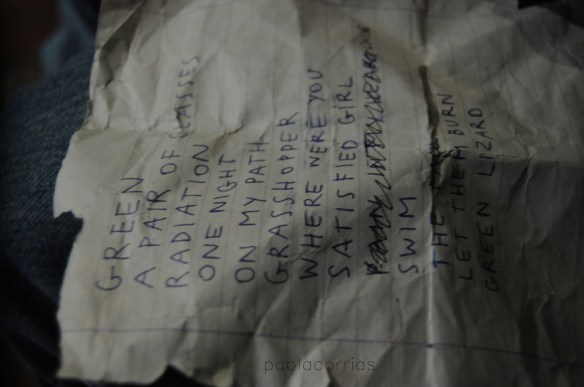 GREEN
A PAIR OF GLASSES
RADIATION
ONE NIGHT
ON MY PATH
GRASSHOPPER
WHERE WERE YOU
SATISFIED GIRL
SWIM
THE
LET THEM BURN
GREEN LIZARD
paolacorrias